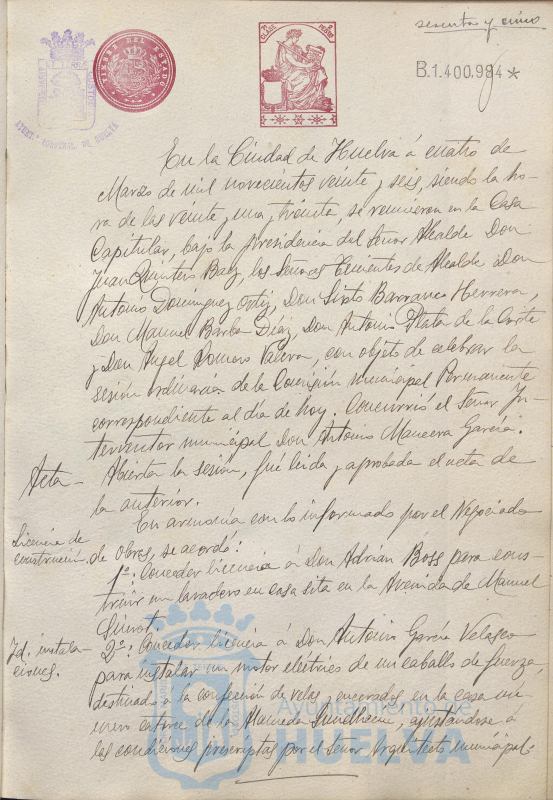 sesenta y cinco
TIMBRE DEL ESTADO
B.1.400.984 *
AYUNT. CONSTNAL. DE HUELVA
En la Ciudad de Huelva á cuatro de
Marzo de mil novecientos veinte y seis, siendo la ho-
ra de las veinte y una y treinta, se reunieron en la Casa
Capitular, bajo la presidencia del Señor Alcalde Don
Juan Quintero Baez, los Señores Tenientes de Alcalde Don
Antonio Dominguez Ortiz, Don Sixto Barranco Herrera,
Don Manuel Barba Diaz, Don Antonio Plata de la Corte
y Don Angel Romero Valera, con objeto de celebrar la
sesión ordinaria de la Comisión municipal Permanente
correspondiente al día de hoy. Concurrió el Señor In-
terventor municipal Don Antonio Mancera García.
Acta - Abierta la sesión, fué leida y aprobada el acta de
la anterior.
En armonia con lo informado por el Negociado
Licencia de
construcción. de obras, se acordó:
1º: Conceder licencia á Don Adrian Boss para cons-
truir un lavadero en casa sita en la Avenida de Manuel
Siurot.
Id. instala-
ciones. 2º: Conceder licencia á Don Antonio García Velasco
para instalar un motor eléctrico de un caballo de fuerza,
destinado á la confección de velas y encerados, en la casa nu-
mero catorce de la Alameda Sundheim, ajustandose á
las condiciones prescriptas por el Señor Arquitecto municipal.
Ayuntamiento de
HUELVA